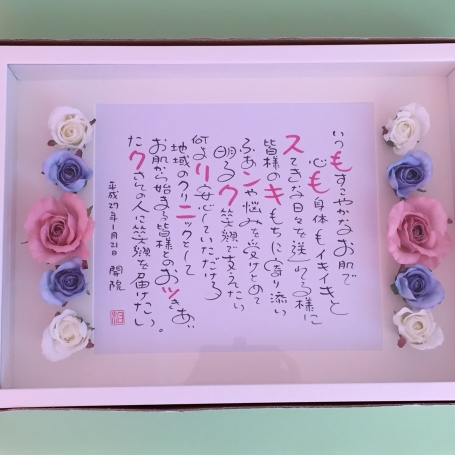 いつもすこやかなお肌で
心も身体もイキイキと
スてきな日々を送れる様に
皆様のキもちに寄り添い
ふあンや悩みを受けとめて
明るク笑顔で支えたい
何よリ安心していただける
地域のクリニックとして
お肌から始まる皆様とのおツきあい
たクさんの人に笑顔を届けたい。
平成27年1月21日 開院